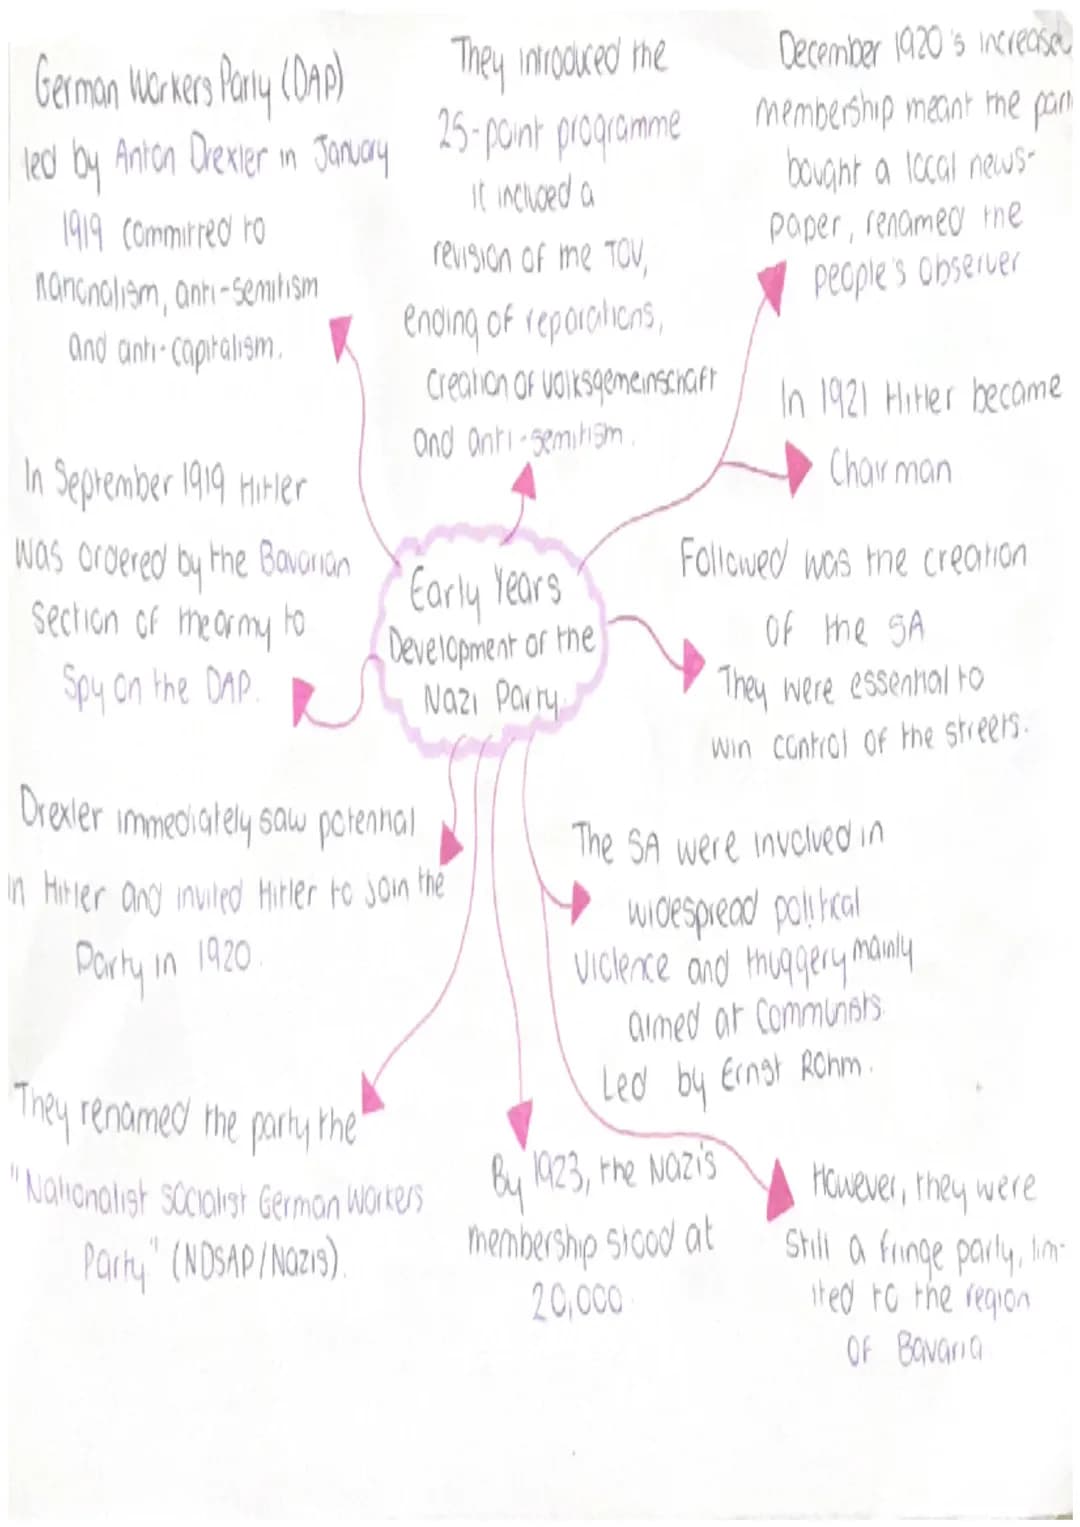 German Workers Party (DAP)
led by Anton Drexler in January
1919 committed to
nationalism, anti-semitism
and anti-capitalism.
They introduced the
25-point programme
it included a
revision of the TOV,
ending of reparations,
creation of volksgemeinschaft
and anti-semitism.
December 1920's increased
membership meant the part
bought a local news-
paper, renamed the
people's observer
In 1921 Hitler became
Chairman
In September 1919 Hitler
was ordered by the Bavarian
section of the army to
Spy on the DAP.
Early Years
Development of the
Nazi Party.
Followed was the creation
of the SA
They were essential to
win control of the streets.
Drexler immediately saw potential
in Hitler and invited Hitler to join the
Party in 1920.
The SA were involved in
widespread political
violence and thuggery mainly
aimed at Communists
Led by Ernst Rohm.
They renamed the party the
"Nationalist socialist German Workers
Party" (NDSAP/Nazis).
By 1923, the Nazi's
membership stood at
20,000
However, they were
Still a fringe party, lim-
ited to the region
of Bavaria